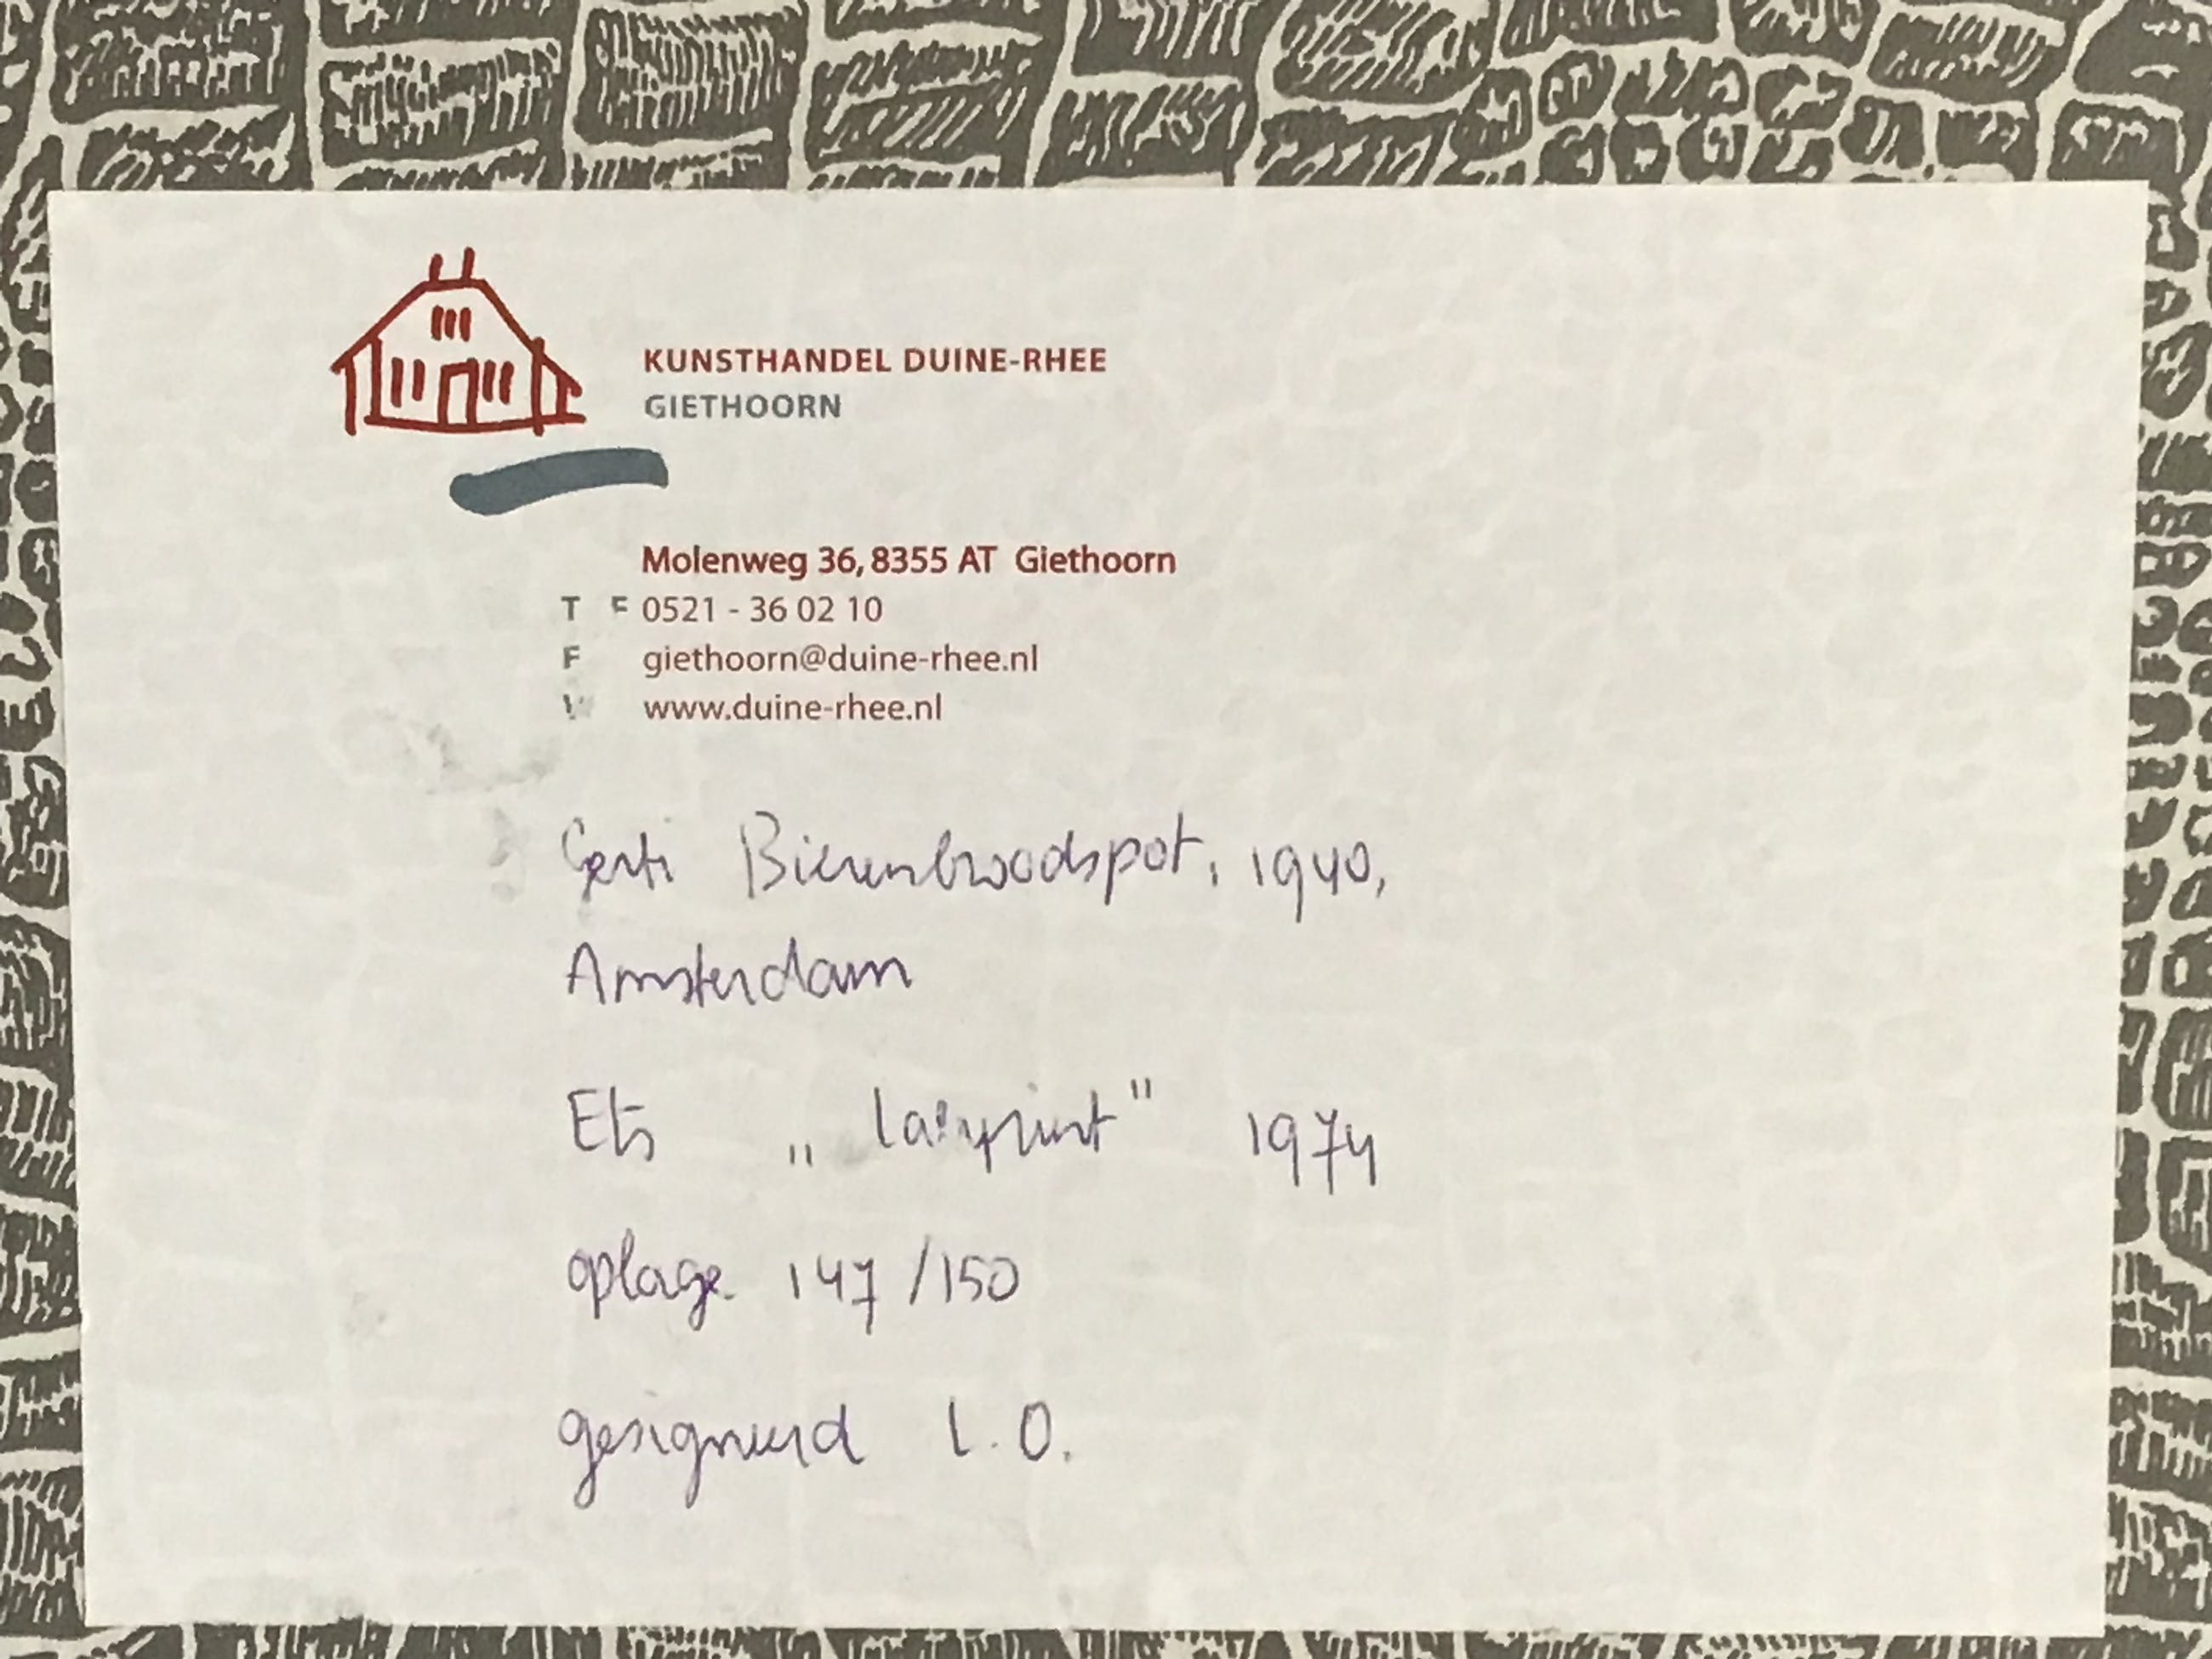 KUNSTHANDEL DUINE-RHEE
GIETHOORN
Molenweg 36, 8355 AT Giethoorn
T F 0521 - 36 02 10
F giethoorn@duine-rhee.nl
W www.duine-rhee.nl
Gerti Bierenbroodspot, 1940,
Amsterdam
Ets „ labyrint" 1974
oplage 147/150
gesigneerd l.o.